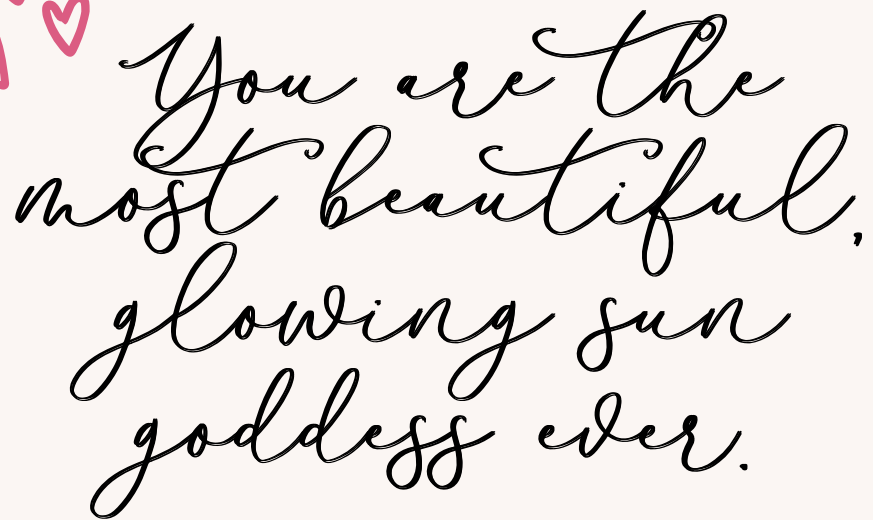 You are the
most beautiful,
glowing sun
goddess ever.